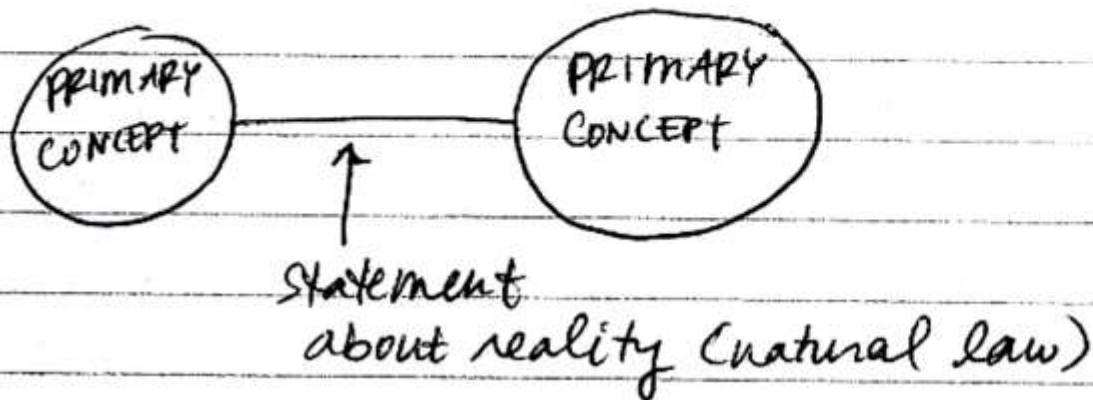 PRIMARY
CONCEPT
PRIMARY
CONCEPT
statement
about reality (natural law)